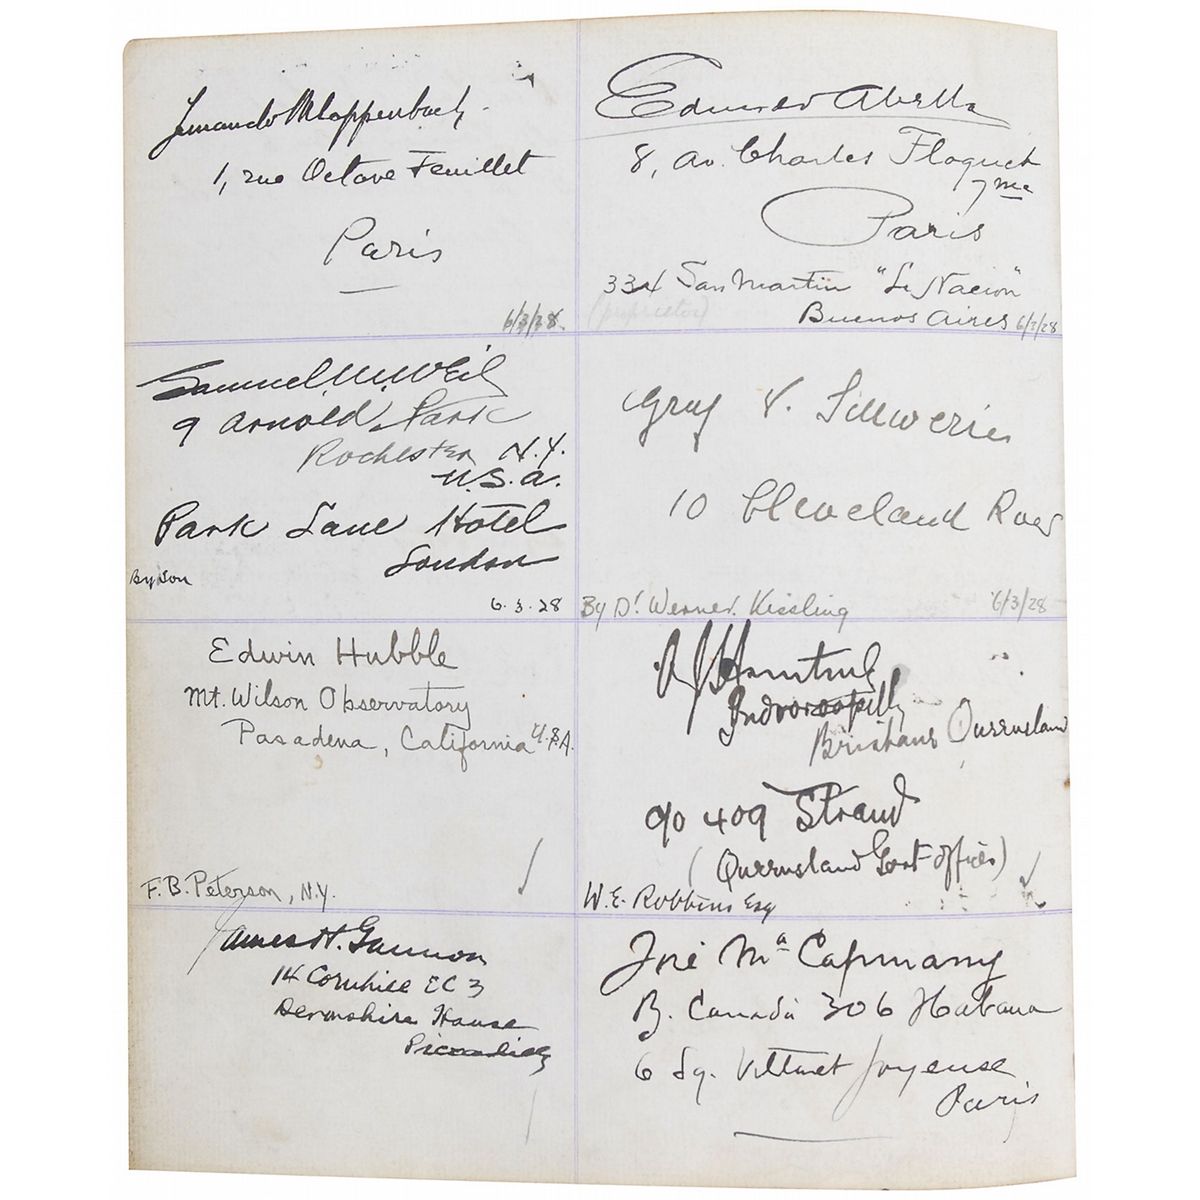 Kloppenbach
1, rue Octave Feuillet
Paris
6/3/28.
Edmundo Abella
8, av. Charles Floquet
7me
Paris
334 San Martin "La Nacion"
(proprietor)
Buenos Aires 6/3/28
Samuel M. Weil
9 Arnold Park
Rochester N.Y.
U.S.A.
Park Lane Hotel
London
By Son
6.3.28
10 Cleveland Row
By Dr. Werner Kissling 6/3/28
Edwin Hubble
Mt. Wilson Observatory
Pasadena, California U.S.A.
F.B. Peterson, N.Y.
Indooroopilly
Brisbane Queensland
c/o 409 Strand
(Queensland Govt offices)
W.E. Robbins Esq
James H. Gannon
14 Cornhill EC3
Devonshire House
Piccadilly
José Ma Capmany
B. Canadá 306 Habana
6 Sq. Joyeuse
Paris